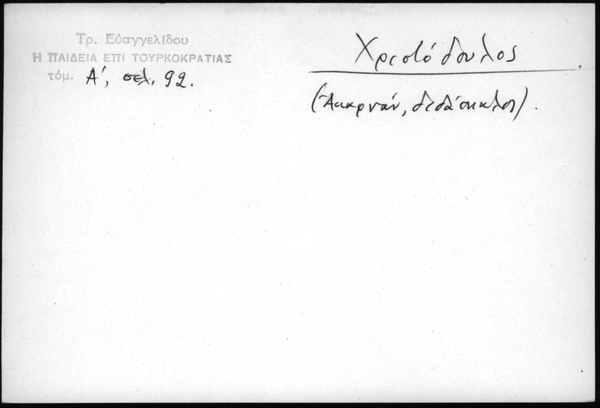 Τρ. Εὐαγγελίδου
Η ΠΑΙΔΕΙΑ ΕΠΙ ΤΟΥΡΚΟΚΡΑΤΙΑΣ
τόμ. Α', σελ. 92.
Χριστόδουλος
(Ἀκαρνάν, διδάσκαλος).